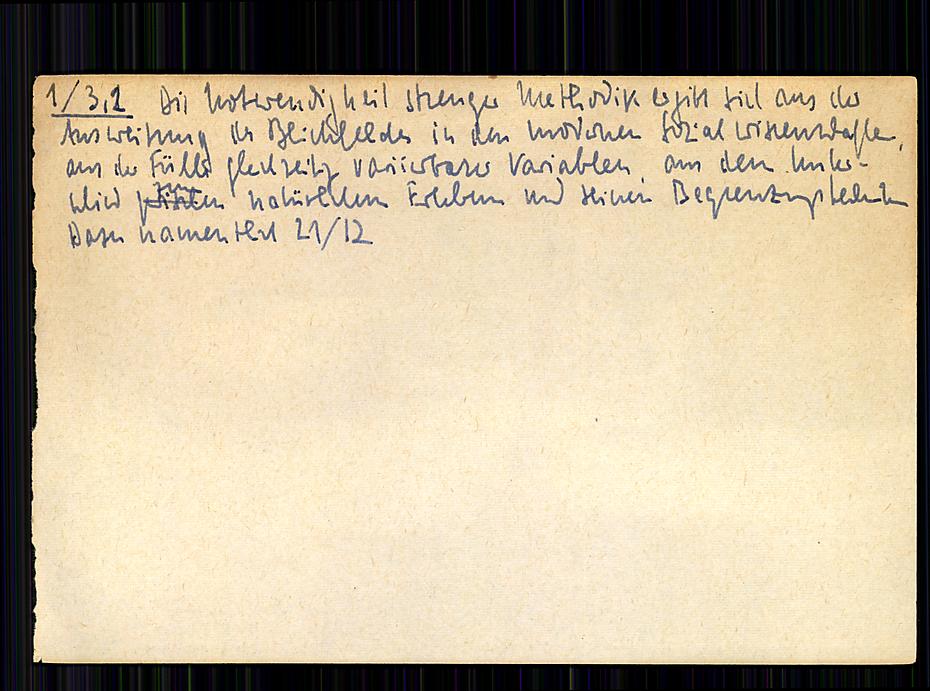 1/3,1 Die Notwendigkeit strenger Methodik ergibt sich aus der
Ausweitung des Blickfeldes in den modernen Sozialwissenschaften,
aus der Fülle gleichzeitig variierbarer Variablen, aus dem Unter-
schied zum natürlichen Erleben und seinen
Dazu namentlich 21/12